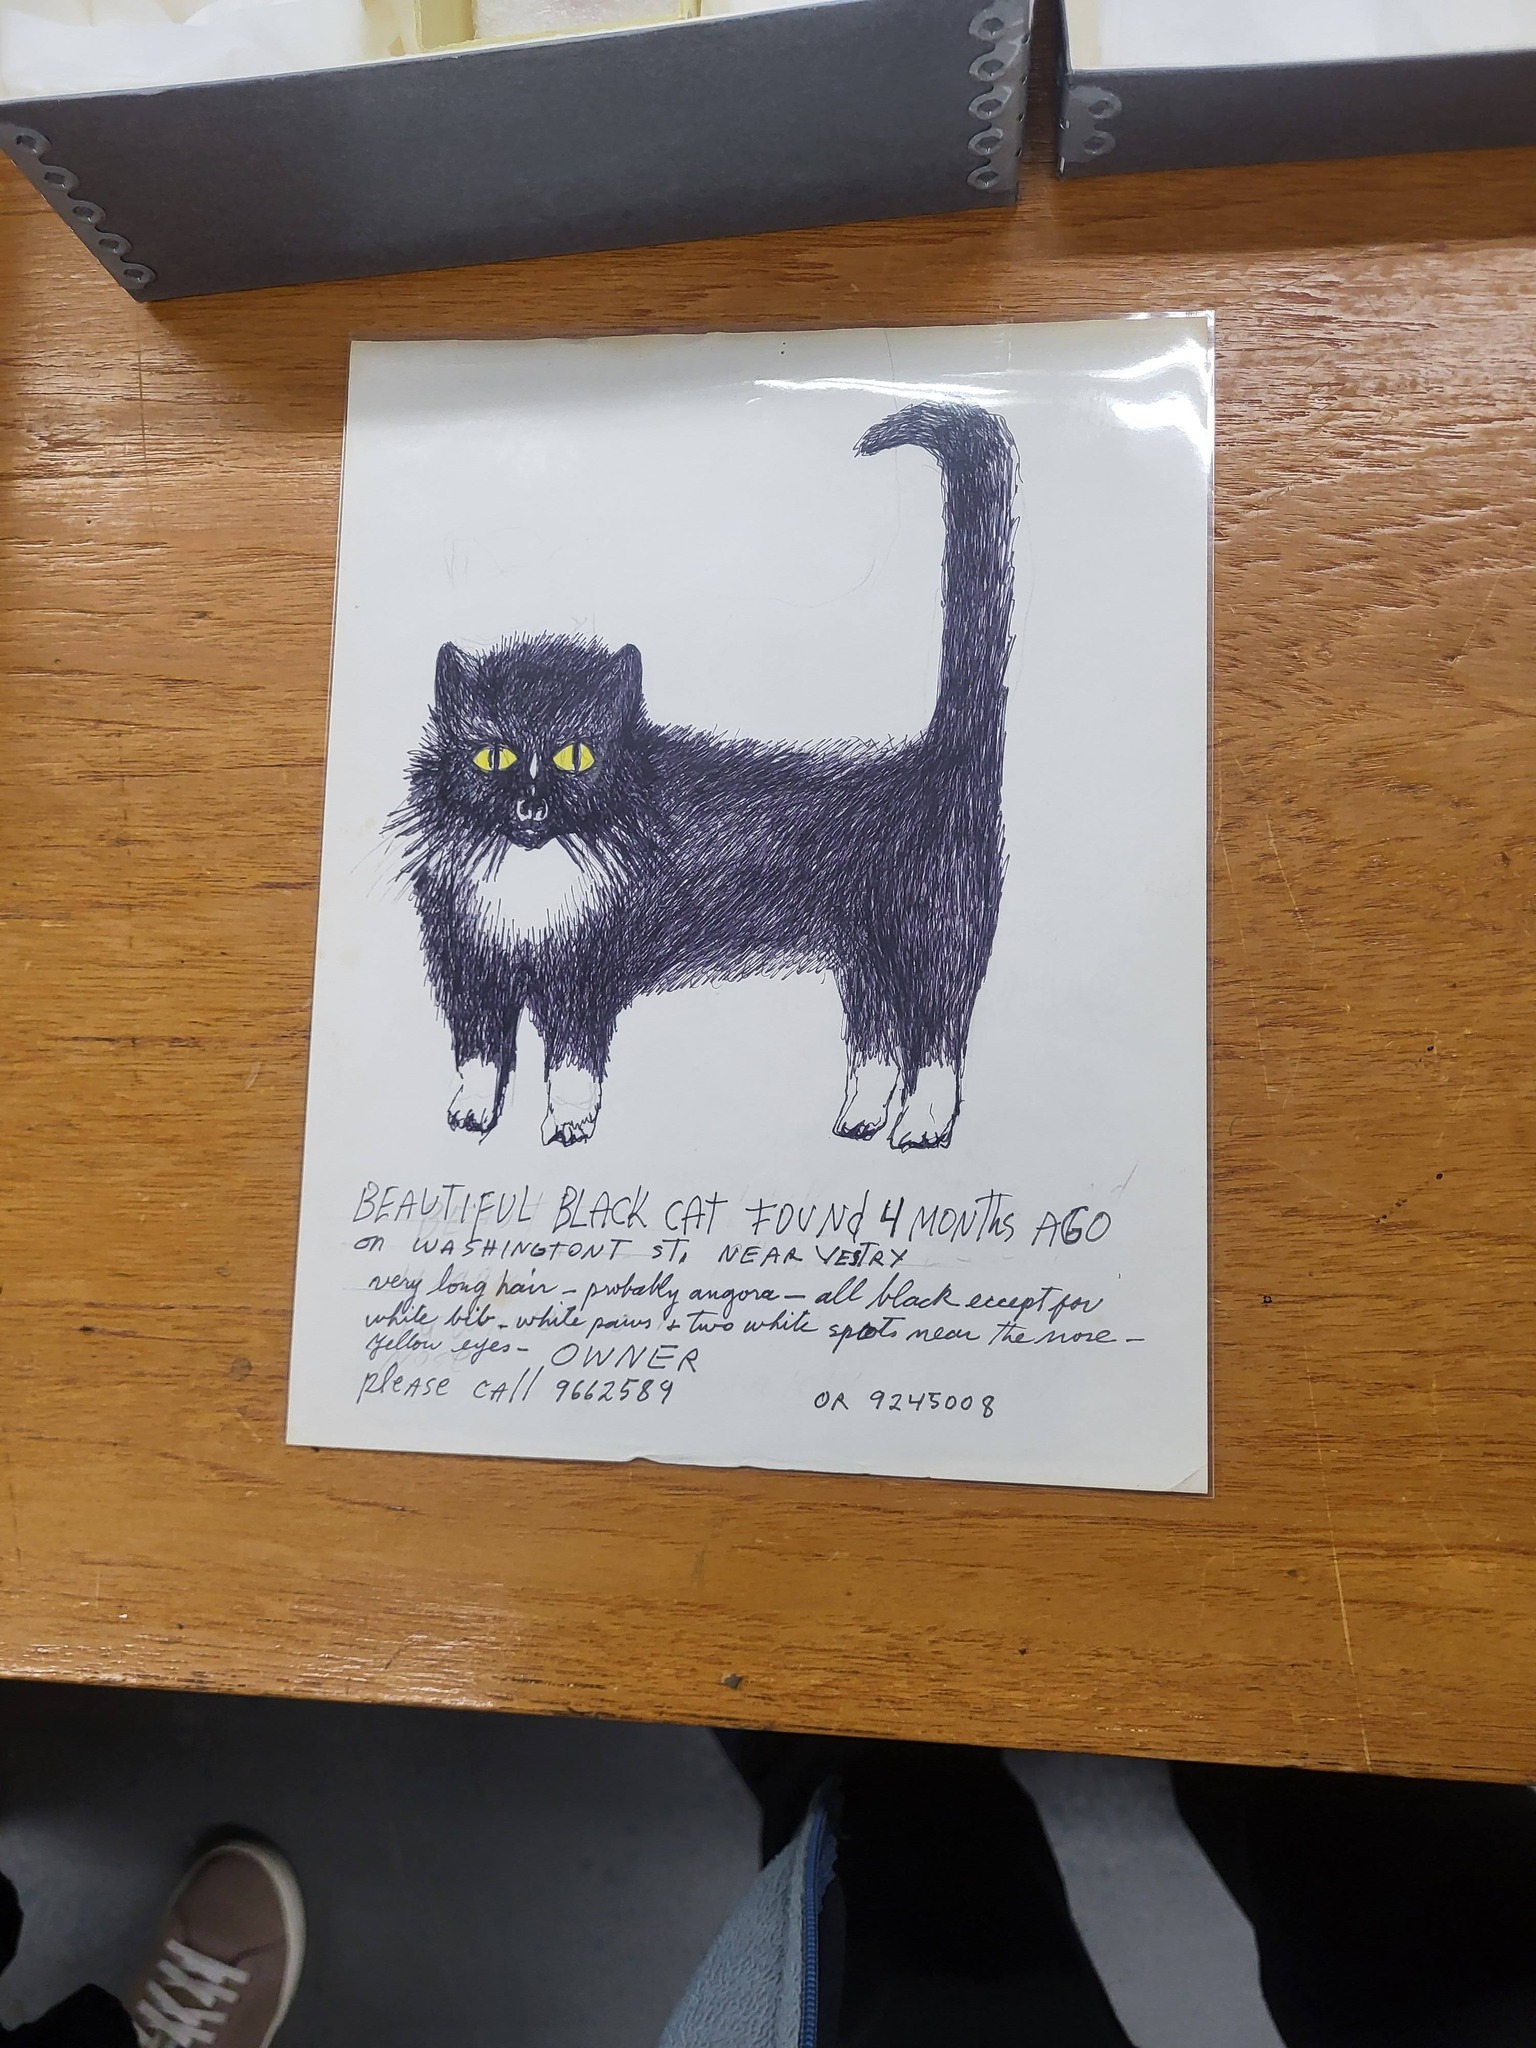 BEAUTIFUL BLACK CAT FOUNd 4 MONThs AGO
on WASHINGTONT ST. NEAR VESTRY
very long hair – probably angora – all black except for
white bib – white paws + two white spots near the nose –
yellow eyes – OWNER
plEASE CAll 9662589 OR 9245008